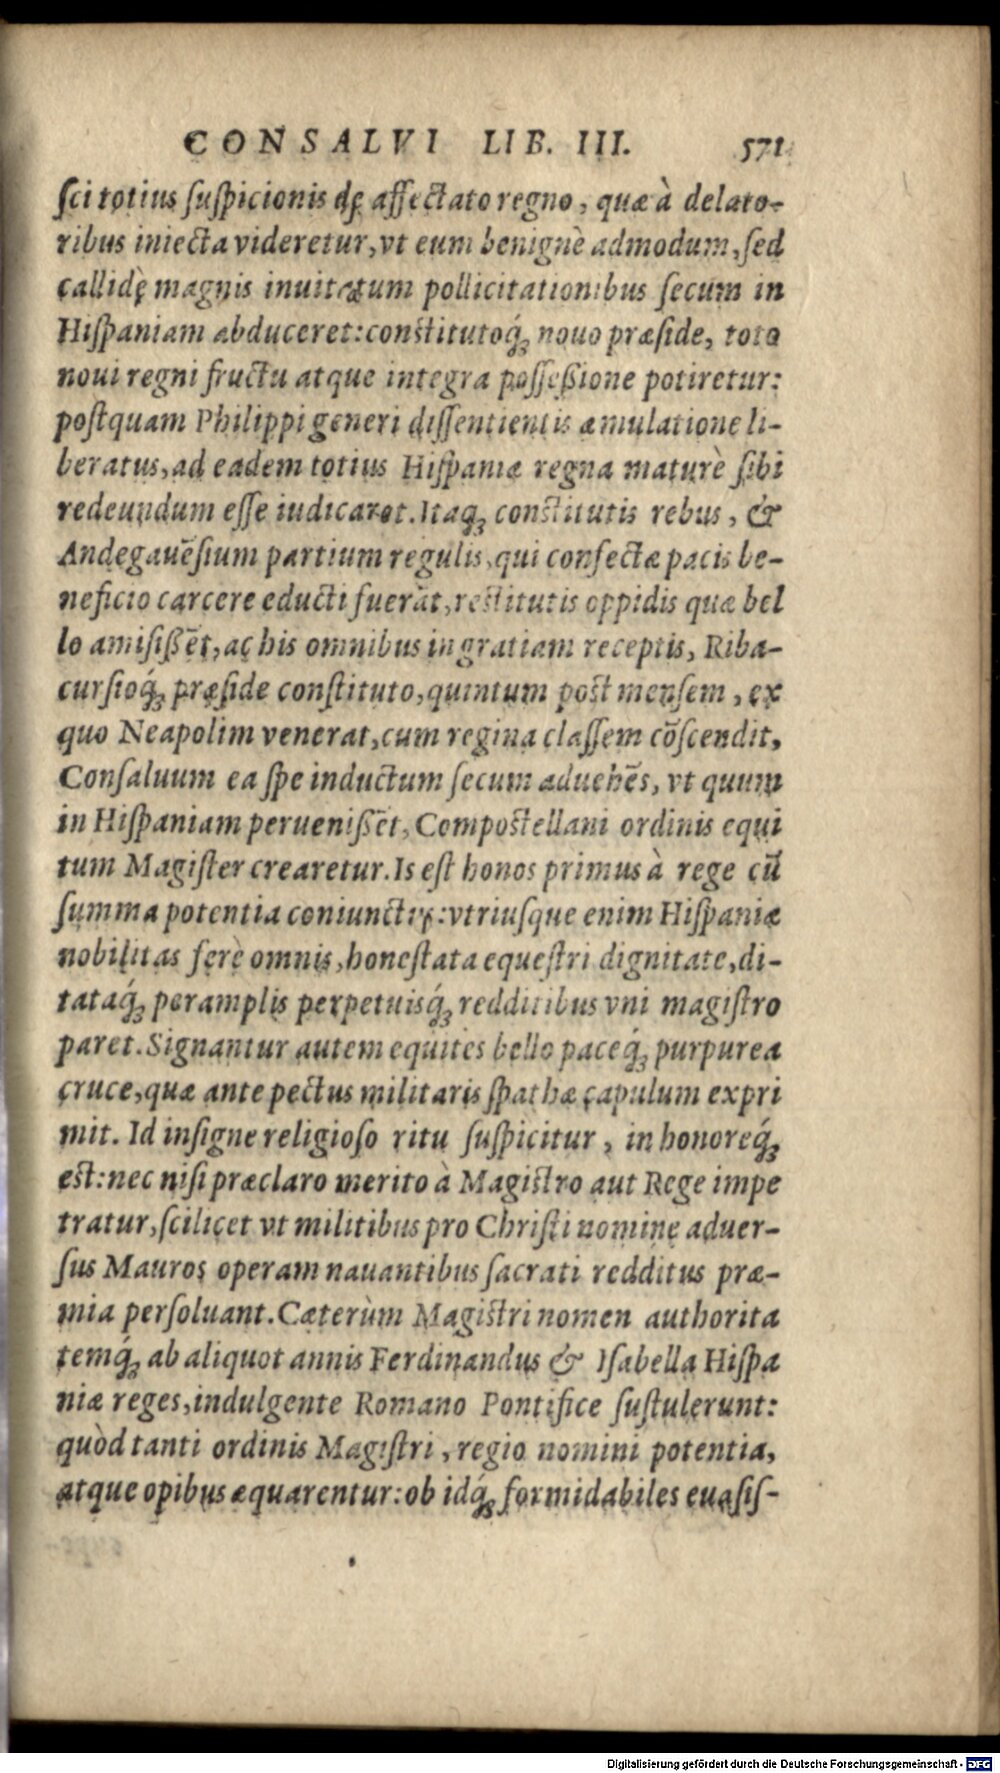 CONSALVI LIB. III. 571
ſci totius ſuſpicionis de affectato regno, quæ à delato-
ribus iniecta videretur, vt eum benignè admodum, ſed
callidè magnis inuitatum pollicitationibus ſecum in
Hiſpaniam abduceret: constitutoq́ꝫ nouo præſide, toto
noui regni fructu atque integra poſſeßione potiretur:
poſtquam Philippi generi diſſentientis æmulatione li-
beratus, ad eadem totius Hiſpaniæ regna maturè ſibi
redeundum eſſe iudicaret. Itaqꝫ constitutis rebus, &
Andegauẽſium partium regulis, qui confectæ pacis be-
neficio carcere educti fuerãt, restitutis oppidis quæ bel
lo amiſißẽt, ac his omnibus in gratiam receptis, Riba-
curſioq́ꝫ præſide conſtituto, quintum post menſem, ex
quo Neapolim venerat, cum regina claſſem cõſcendit,
Conſaluum ea ſpe inductum ſecum aduehẽs, vt quum
in Hiſpaniam perueniſſẽt, Compostellani ordinis equi
tum Magiſter crearetur. Is eſt honos primus à rege cũ
ſumma potentia coniunctus: vtriuſque enim Hiſpaniæ
nobilitas ferè omnis, honeſtata equeſtri dignitate, di-
tataq́ꝫ peramplis perpetuisq́ꝫ redditibus vni magiſtro
paret. Signantur autem equites bello paceq́ꝫ purpurea
cruce, quæ ante pectus militaris ſpathæ capulum expri
mit. Id inſigne religioſo ritu ſuſpicitur, in honoreq́ꝫ
est: nec niſi præclaro merito à Magiſtro aut Rege impe
tratur, ſcilicet vt militibus pro Chriſti nomine aduer-
ſus Mauros operam nauantibus ſacrati redditus præ-
mia perſoluant. Cæterùm Magiſtri nomen authorita
temq́ꝫ ab aliquot annis Ferdinandus & Iſabella Hiſpa
niæ reges, indulgente Romano Pontifice ſuſtulerunt:
quòd tanti ordinis Magiſtri, regio nomini potentia,
atque opibus æquarentur: ob idq́ꝫ formidabiles euaſiſ-
Digitalisierung gefördert durch die Deutsche Forschungsgemeinschaft - DFG